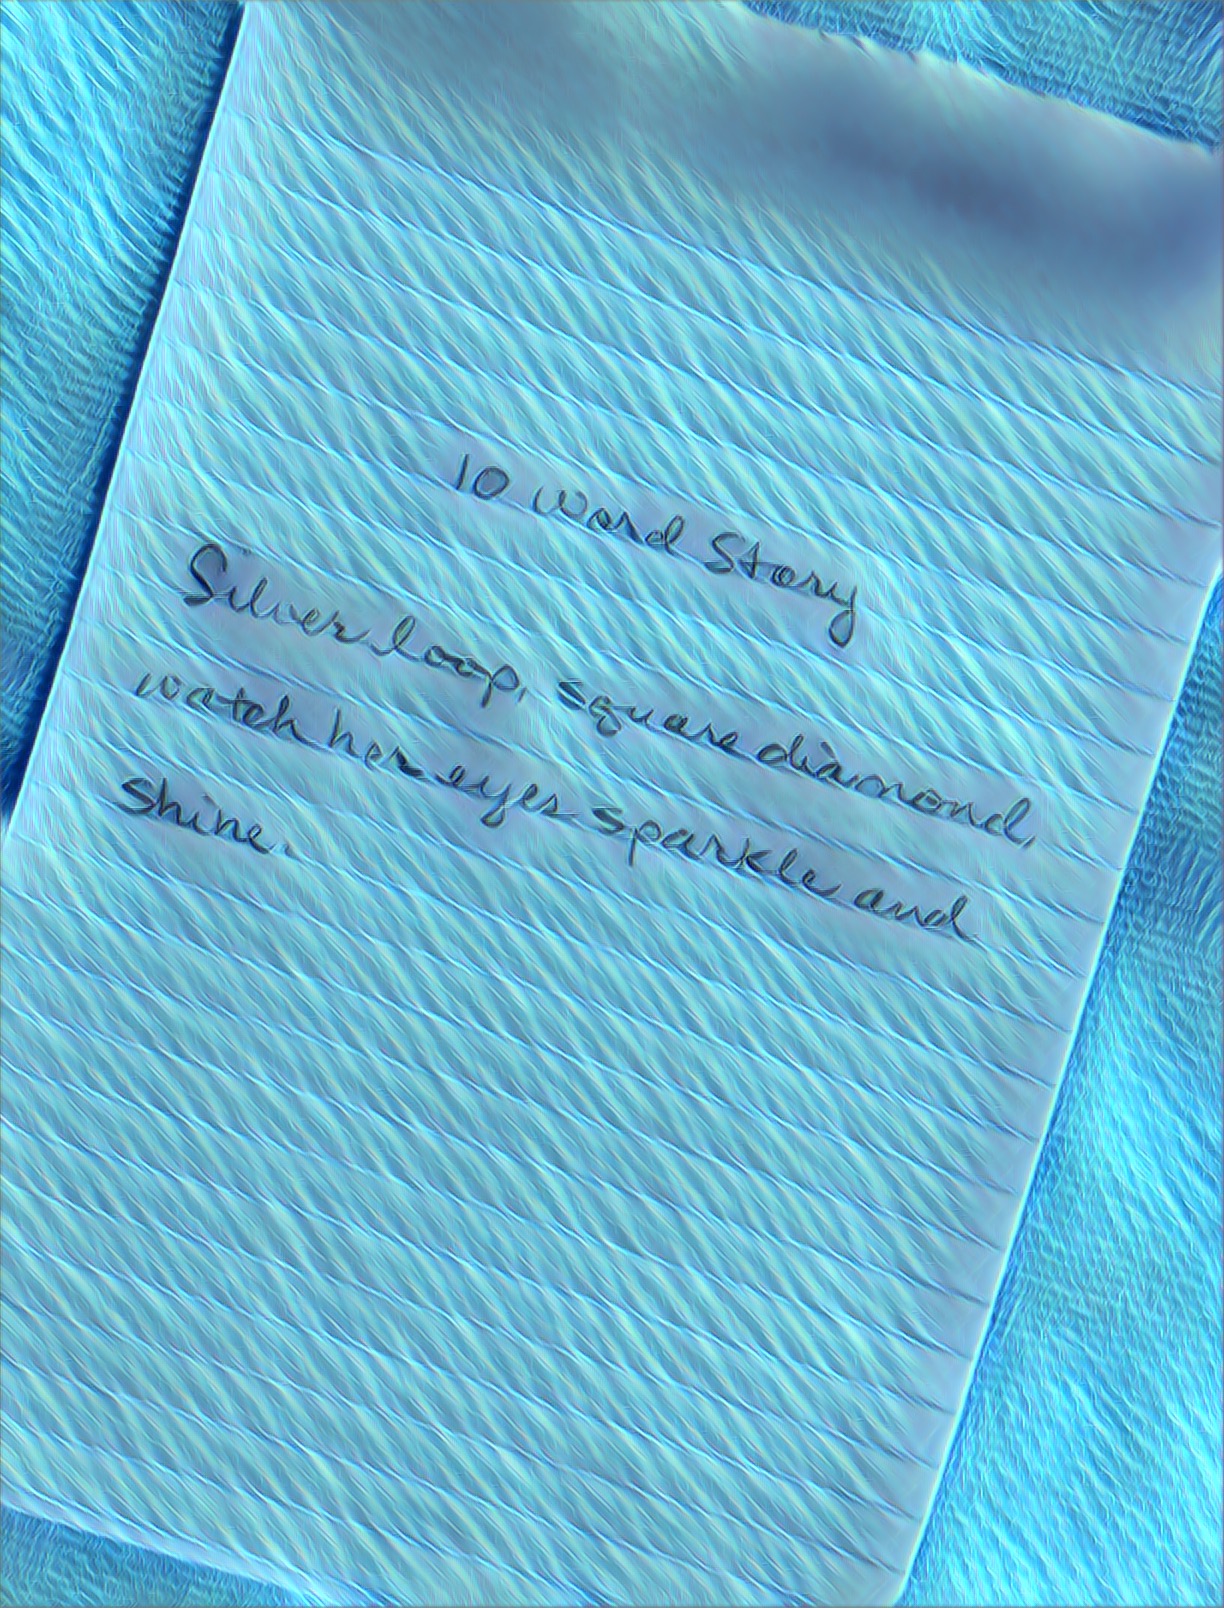 10 word Story
Silver loop, square diamond,
watch her eyes sparkle and
shine.